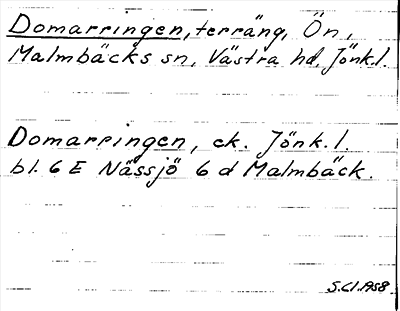 Domarringen, terräng, Ön,
Malmbäcks sn, Västra hd, Jönk.l.
Domarringen, ek. Jönk.l.
bl. 6 E Nässjö 6 d Malmbäck.
S.Cl.1958